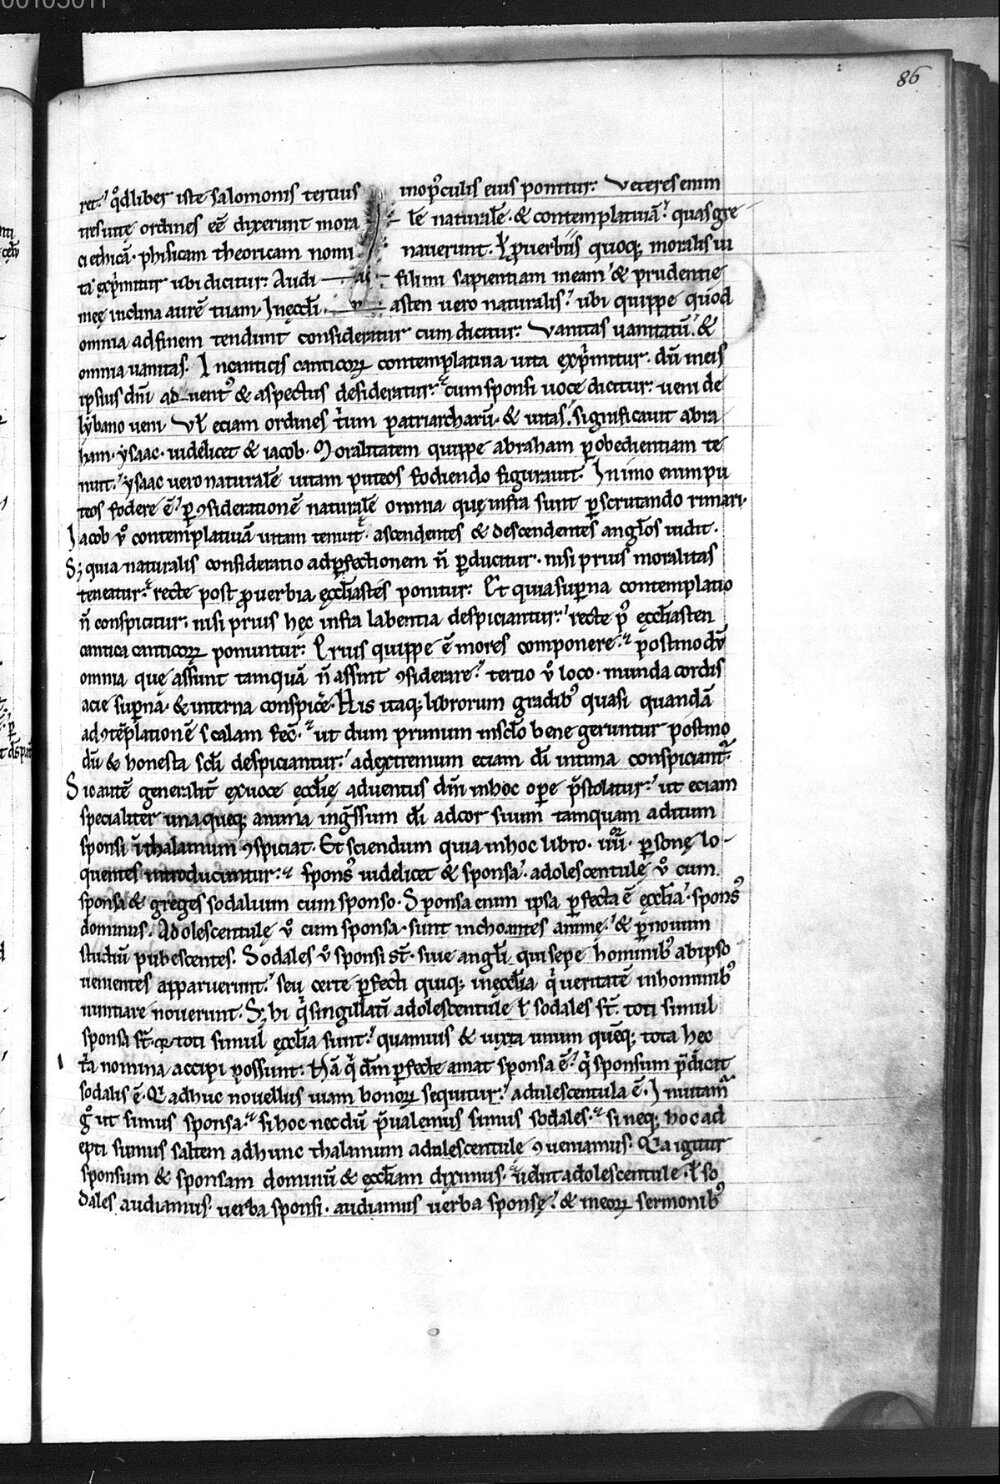 00105011
86
ret.' q̊dliber iste salomonis tertius inop̱culis eius ponitur: Veteres enim
tres uitę ordines eē dixerunt mora lē naturalē & contemplatiuā. quas gre
ci ethicā. phisicam theoricam nomi nauerunt. In prouerbiis quoq; moralis ui
ta exp̄mitur ubi dicitur: Audi fili mi sapientiam meam & prudentie
meę inclina aurē tuam. In ęccl̄i asten uero naturalis. ubi quippe quod
omnia ad finem tendunt consideratur cum dicitur: Vanitas uanitatū. &
omnia uanitas. In canticis canticoꝝ contemplatiua uita exp̄mitur. dū in eis
ipsius dn̄i aduentꝰ & aspectus desideratur. cum sponsi uoce dicitur: ueni de
lybano ueni. Vł etiam ordines triū patriarcharū. & uitas significauit abra
ham. ysaac. uidelicet & iacob. Moralitatem quippe abraham ꝑ obedientiam te
nuit. ysaac uero naturalē uitam puteos fodiendo figurauit. In imo enim pu
teos fodere ē. ꝑ ꝯsiderationē naturalē omnia quę infra sunt ꝑscrutando rimari.
Iacob ů contemplatiuā uitam tenuit. ascendentes & descendentes angl̄os uidit.
S; quia naturalis consideratio ad ꝑfectionem n̄ ꝑducitur. nisi prius moralitas
teneatur. recte post ꝓuerbia ęccl̄iastes ponitur: Et quia suꝑna contemplatio
n̄ conspicitur: nisi prius hęc infra labentia despiciantur. recte p̊ ęccl̄iasten
cantica canticoꝝ ponuntur: Prius quippe ē mores componere. postmodū
omnia quę assunt tamquā n̄ assint ꝯsiderare. tertio ů loco. munda cordis
acie suꝑna. & interna conspicere. His itaq; librorum gradibꝰ quasi quandā
ad ꝯtēplationē scalam fec̄. ut dum primum in sc̄lo bene geruntur postmo
dū & honesta sc̄li despiciantur. ad extremum etiam dī intima conspiciant̄.
Sic autē generalit̄ ex uoce ęccl̄ię aduentus dn̄i in hoc oꝑe p̄stolatur. ut etiam
specialiter unaqueq; anima ingressum dī ad cor suum tamquam aditum
sponsi in thalamum ꝯspiciat. Et sciendum quia in hoc libro. iiiior. ꝑsonę lo-
quentes introducuntur. sponsꝰ uidelicet & sponsa. adolescentulę ů cum
sponsa & greges sodalium cum sponso. Sponsa enim ipsa ꝑfecta ē ęccl̄ia. sponsꝰ
dominus. Adolescentulę ů cum sponsa. sunt inchoantes animę. & ꝑ nouum
studiū pubescentes. Sodales ů sponsi st̄. siue angl̄i qui sepe hominibꝰ ab ipso
uenientes apparuerunt. seu certe ꝑfecti quiq; in ęccl̄ia qui ueritatē in hominibꝰ
nuntiare nouerunt. S; hi qui singillatī adolescentulę ł sodales st̄. toti simul
sponsa st̄. toti simul ęccl̄ia sunt. quamuis & iuxta unum quēq; tota hec
tria nomina accipi possunt: Nā qui dm̄ ꝑfecte amat sponsa ē. qui sponsum p̄dicat
sodalis ē. Qui adhuc nouellus uiam bonoꝝ sequitur. adulescentula ē. Inuitam̄
gº ut simus sponsa. si hoc necdū p̄ualemus simus sodales. si neq; hoc ad
epti sumus saltem ad hunc thalamum adulescentulę ꝯueniamus. Quia igitur
sponsum & sponsam dominū & ęccl̄iam diximus. uelut adolescentulę. ł so
dales audiamus. uerba sponsi. audiamus uerba sponsę. & in eoꝝ sermonibꝰ